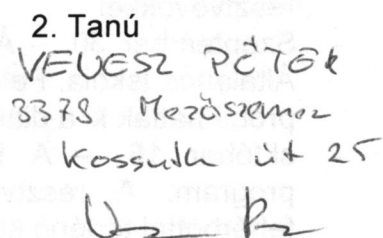 2. Tanú
VEVESZ PÉTER
3378 Mezőszemere
Kossuth út 25